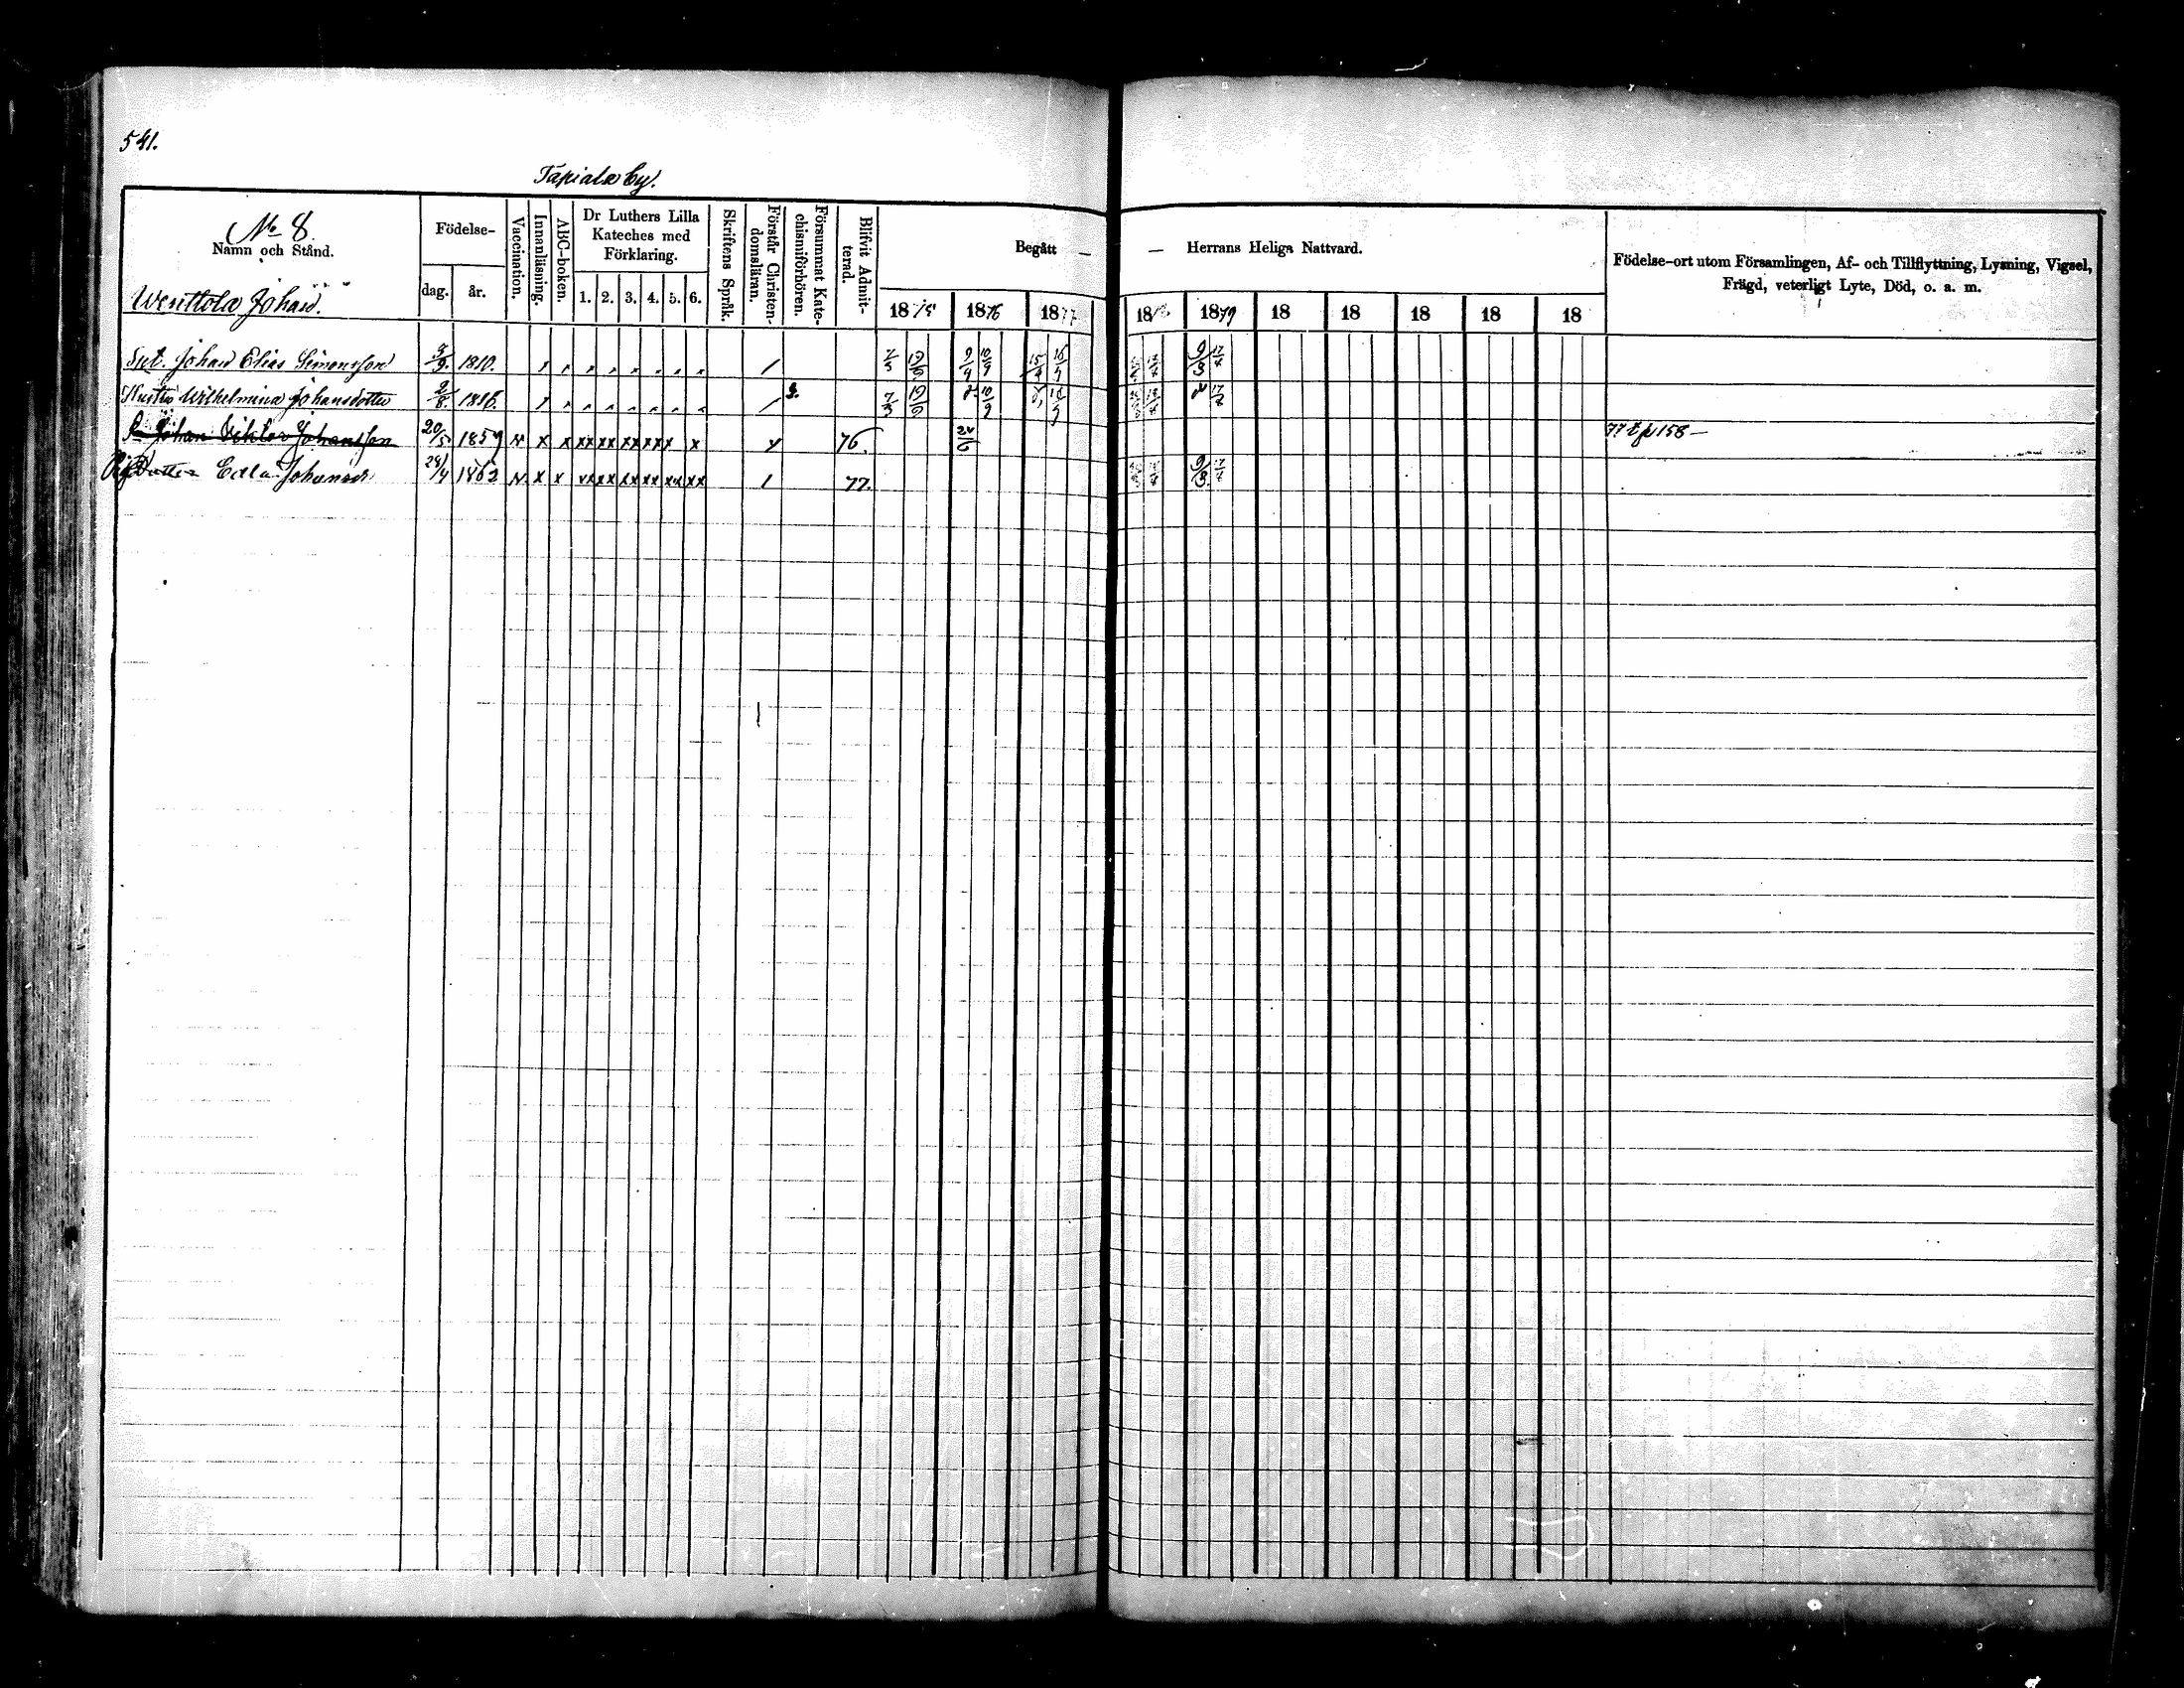 541.
Tapiala by.
No 8.
Namn och Stånd.
Födelse-
dag. år.
Vaccination.
Innanläsning.
ABC-boken.
Dr Luthers Lilla Kateches med Förklaring.
1. 2. 3. 4. 5. 6.
Skriftens Språk.
Förstår Christen-domsläran.
Försummat Kate-chismiförhören.
Blifvit Admit-terad.
Begått — — Herrans Heliga Nattvard.
18 1876 1877 18 1879 18 18 18 18 18
Födelse-ort utom Församlingen, Af- och Tillflyttning, Lysning, Vigsel,
Frägd, veterligt Lyte, Död, o. a. m.
Johan.
Johan Elias Simonsson 1810. 9/4 10/9 15/4 16/9 9/3 17/7
Hustru Wilhelmina Johansdotter 2/8. 1816. 10/9 17/7
Johan Viktor Johansson 20/5. 1859 v x x xx xx xx xx x x 76. 24/6 77 t p 158 —
Edla Johansdr 24/4 1862 v. x x xx xx xx xx xx xx 77. 9/3. 17/7